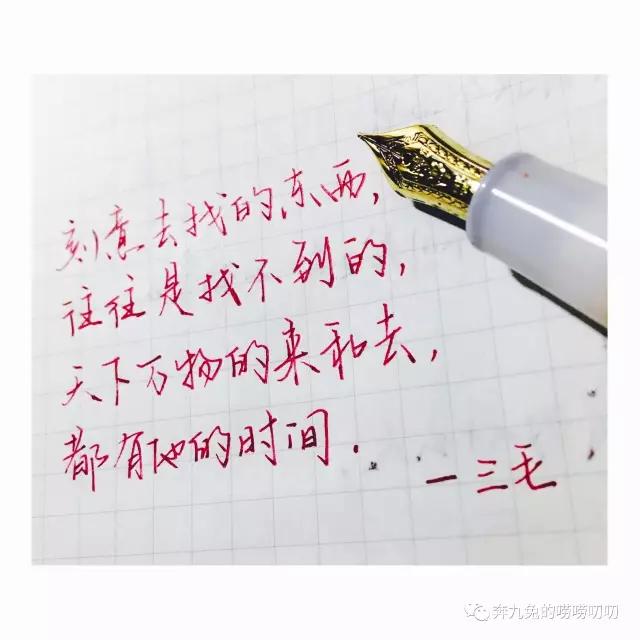 刻意去找的东西,
往往是找不到的,
天下万物的来和去,
都有它的时间.
一三毛
奔九兔的唠唠叨叨